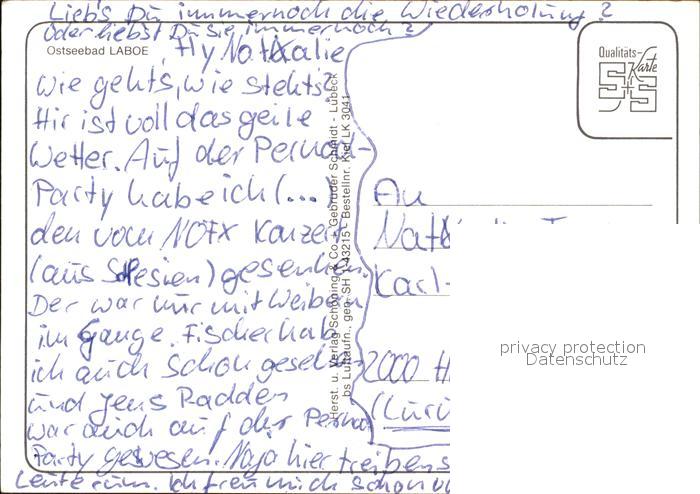 Lieb's Du immernoch die Wiederholung?
Oder liebst Du sie immernoch?
Ostseebad LABOE
Hy Natalie
wie gehts, wie stehts?
Hir ist voll das geile
Wetter. Auf der Pernod-
Party habe ich (...)
den vom NOFX Konzert
(aus Schlesien) gesehen.
Der war nur mit Weiber
im Gange. Fischer hab
ich auch schon gesehen
und Jens Radden
war auch auf der Pernod
Party gewesen. Naja hier treiben s
Leute rum. Ich freu mich schon
Herst. u. Verlag Schöning & Co + Gebrüder Schmidt - Lübeck
bs Luftaufn., gen. SH 1-43215 - Bestellnr. Kiel LK 3041
Qualitäts-
Karte
S+S
An
Nat
Karl-
2000 H
privacy protection
Datenschutz